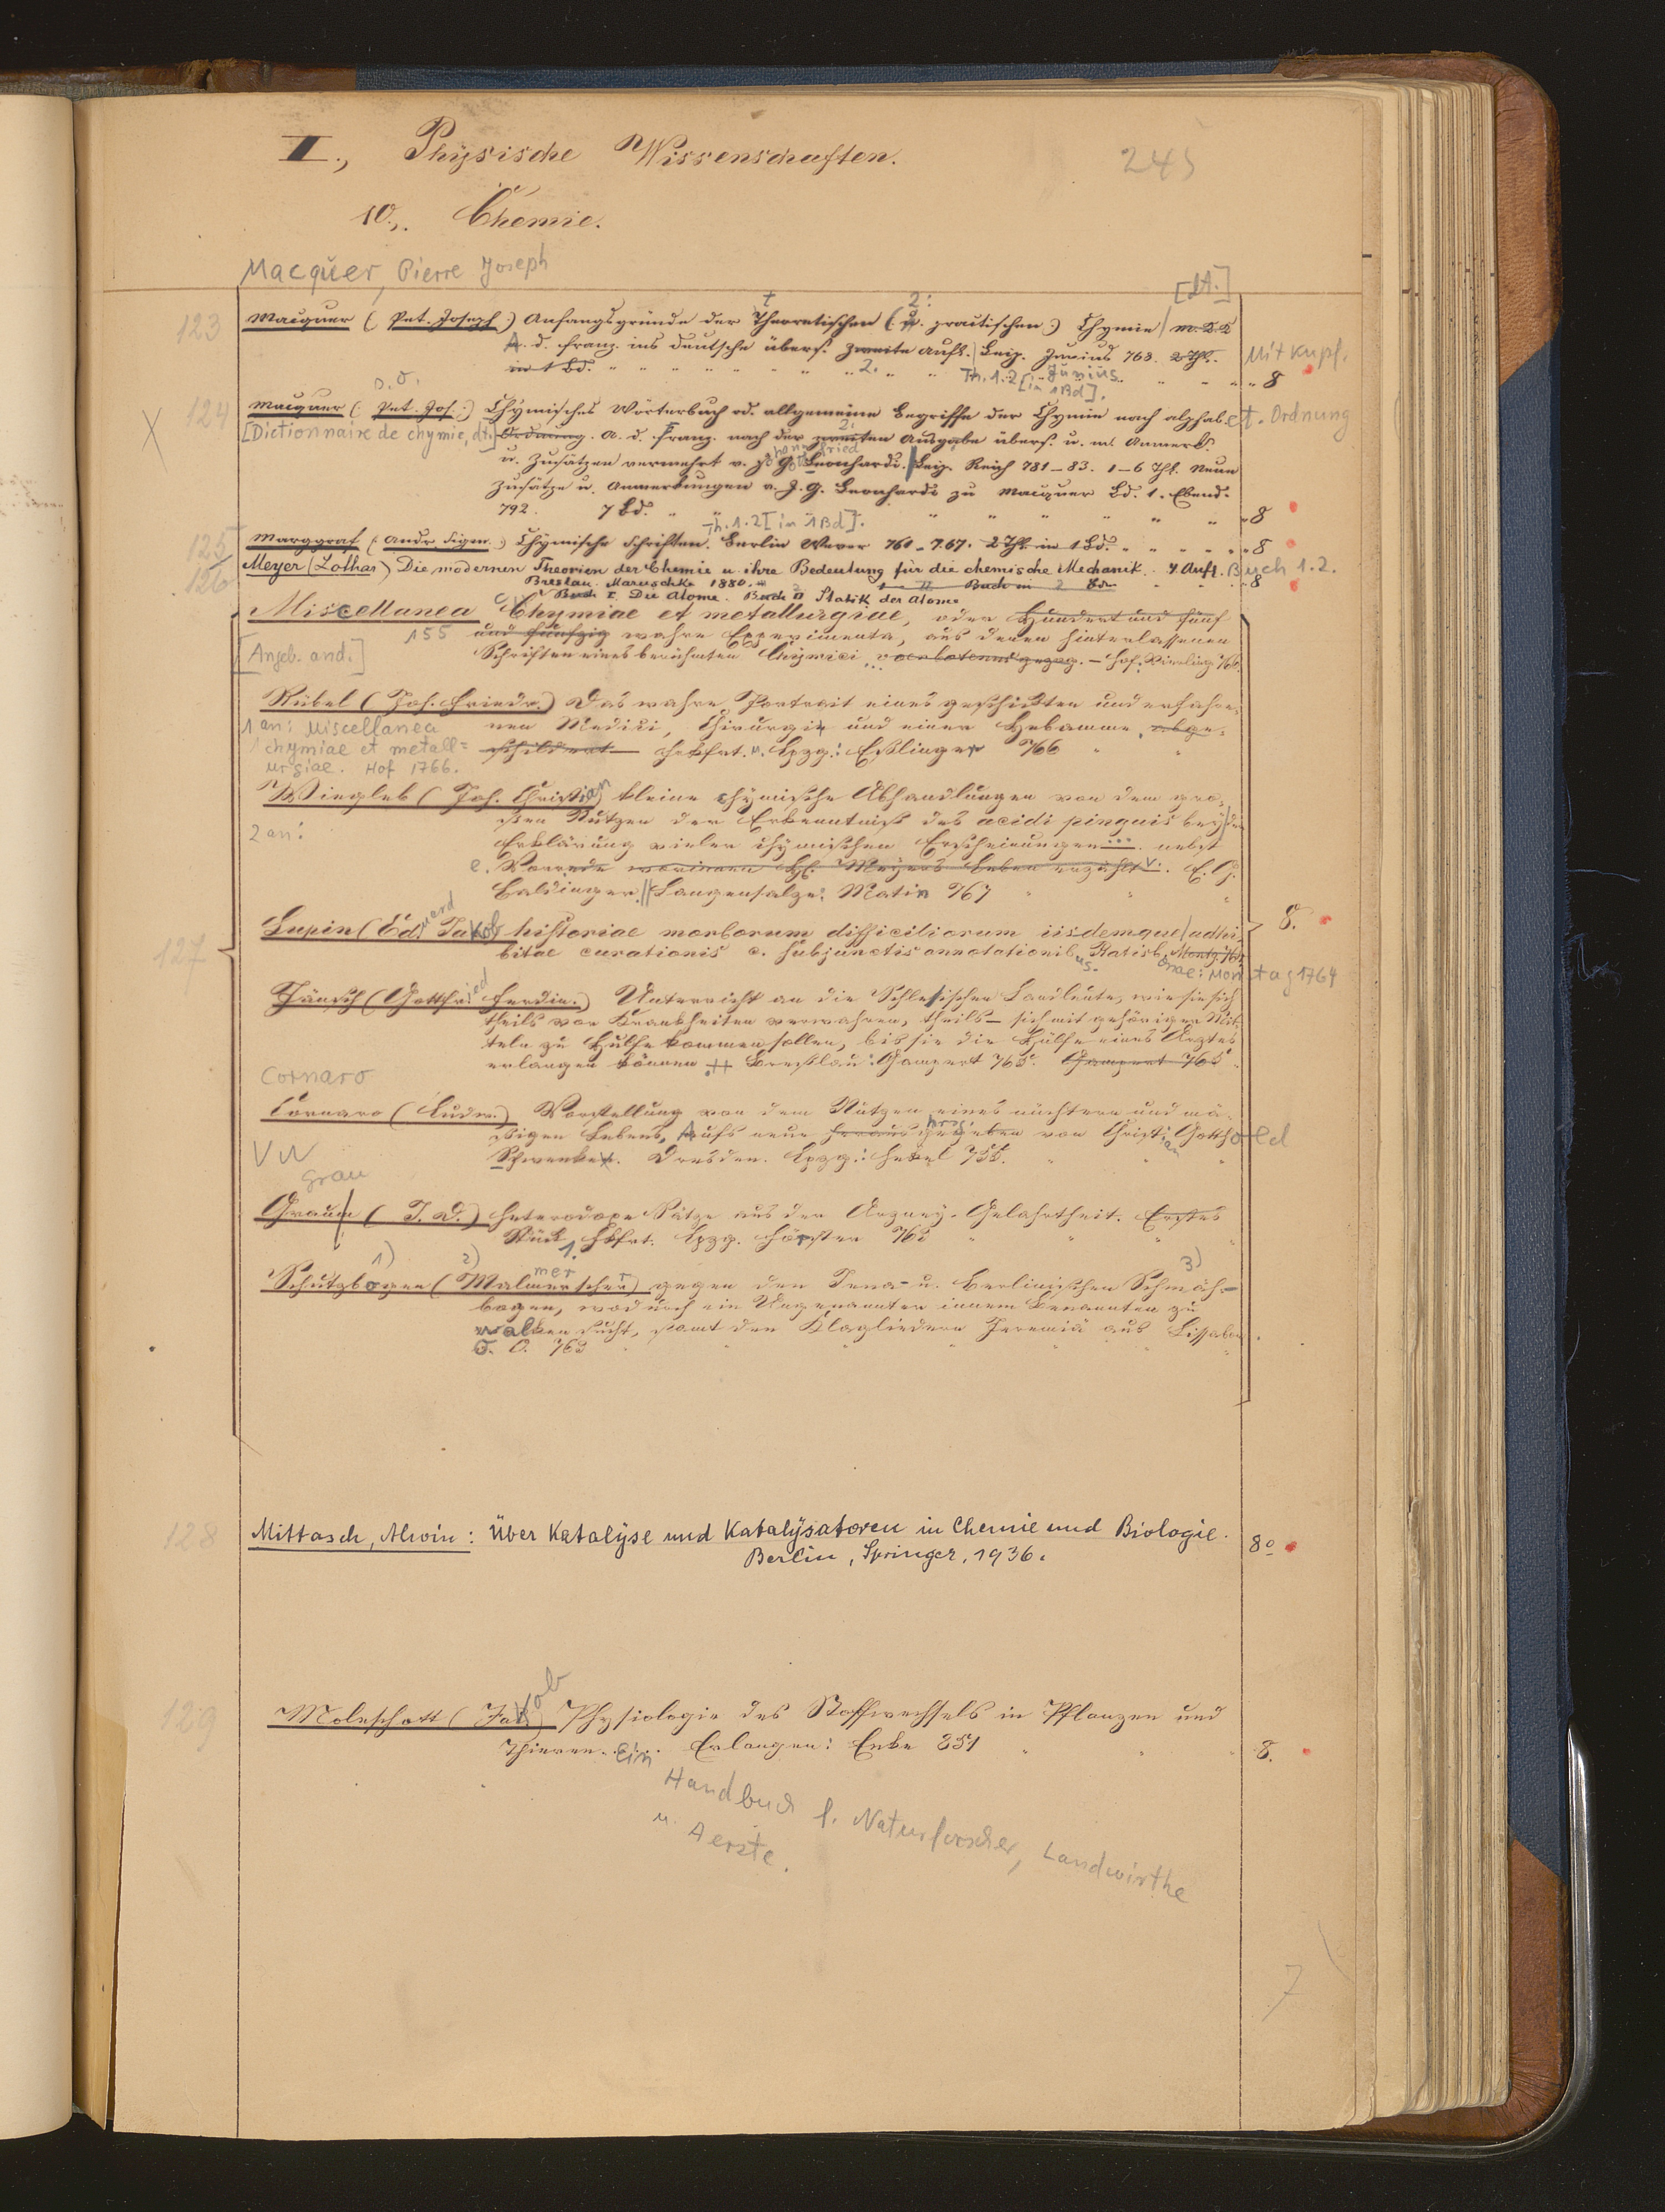 II., Physische Wissenschaften.
245
10., Chemie.
Macquer, Pierre Joseph
[dt.]
123 Macquer (Pet. Joseph) Anfangsgründe der Theoretischen (u. practischen) Chymie m. K.
A. d. Franz. ins deutsche übers. zweite Aufl. Leip. Junius 763. 2 Thl. Mit Kupf.
in 1 Bd. 2. Th. 1.2 [in 1 Bd]. Junius 8
s. o.
124 Macquer (Pet. Jos.) Chymisches Wörterbuch od. allgemeine Begriffe der Chymie nach alphabet. Ordnung
[Dictionnaire de chymie, dt.] Ordnung. A. d. Franz. nach der zweiten Ausgabe übers. u. m. Anmerk.
u. Zusätzen vermehrt v. Johann Gottfried Leonhardi. Leip. Reich 781-83. 1-6 Thl. Neue
Zusätze u. Anmerkungen v. J. G. Leonhardi zu Macquer Bd. 1. Ebend.
792. 7 Bd. 8
Th. 1.2 [in 1 Bd].
125 Marggraf (Andr. Sigm.) Chymische Schriften. Berlin Wever 761-767. 2 Thl. in 1 Bd. 8
126 Meyer (Lothar) Die modernen Theorien der Chemie u. ihre Bedeutung für die chemische Mechanik. 4. Aufl. Buch 1.2.
Breslau. Maruschke 1880. Buch in 2 Bdn 8
Buch I. Die Atome. Buch II Statik der Atome
Miscellanea Chymiae et metallurgiae, oder Hundert und fünf
155 und funfzig wahre Experimenta, aus denen hinterlassenen
[Angeb. and.] Schriften eines berühmten Chymici ... Hof. Vierling 766.
Rübel (Joh. Friedr.) Das wahre Portrait eines geschickten und erfahre-
1 an: Miscellanea nen Medici, Chirurgi und einer Hebamme, abge-
chymiae et metall= schildert Frkfrt. u. Lpzg.: Eßlinger 766
urgiae. Hof 1766.
Wiegleb (Joh. Christian) kleine chymische Abhandlungen von dem gro-
ßen Nutzen der Erkenntniß des acidi pinguis bey der
2 an: Erklärung vieler chymischen Erscheinungen ... nebst
e. Vorrede worinnen H. Meyers Leben erzählt v. E. G.
Baldinger. Langensalza: Martin 767
127 Lupin (Eduard Jakob) historiae morborum difficiliorum iisdemque adhi-
bitae curationis c. subjunctis annotationibus. Ratisbonae: Montag 1764 8.
Jänsch (Gottfried Ferdin.) Unterricht an die Schlesischen Landleute, wie sie sich
theils vor Krankheiten verwahren, theils sich mit gehörigen Mit-
teln zu Hülfe kommen sollen, bis sie die Hülfe eines Arztes
erlangen können Breßlau: Gampert 765. Gampert 765
Cornaro
Cornaro (Ludw.) Vorstellung von dem Nutzen eines nüchtern und mä-
ßigen Lebens, Aufs neue herausgegeben hrsg. von Christian Gotthold
VW Schwenke. Dresden. Lpzg.: Hekel 755.
Grau
Graun (J. D.) Heterodoxe Sätze aus der Arzney-Gelahrtheit. Erstes
Stück 1. Frkfrt. Lpzg. Förster 762
1) 2) 3)
Schutzbogen (Malmerscher) gegen den Jena- u. Berlinischen Schmäh-
bogen, wodurch ein Ungenannter einem Benannten zu
walken sucht, samt den Klagliedern Jeremiä aus Lissabon.
O. O. 763
128 Mittasch, Alwin: Über Katalyse und Katalysatoren in Chemie und Biologie.
Berlin, Springer, 1936. 8º
129 Moleschott (Jakob) Physiologie des Stoffwechsels in Pflanzen und
Thieren. Ein Erlangen: Enke 851 8.
Handbuch f. Naturforscher, Landwirthe
u. Aerzte.
7